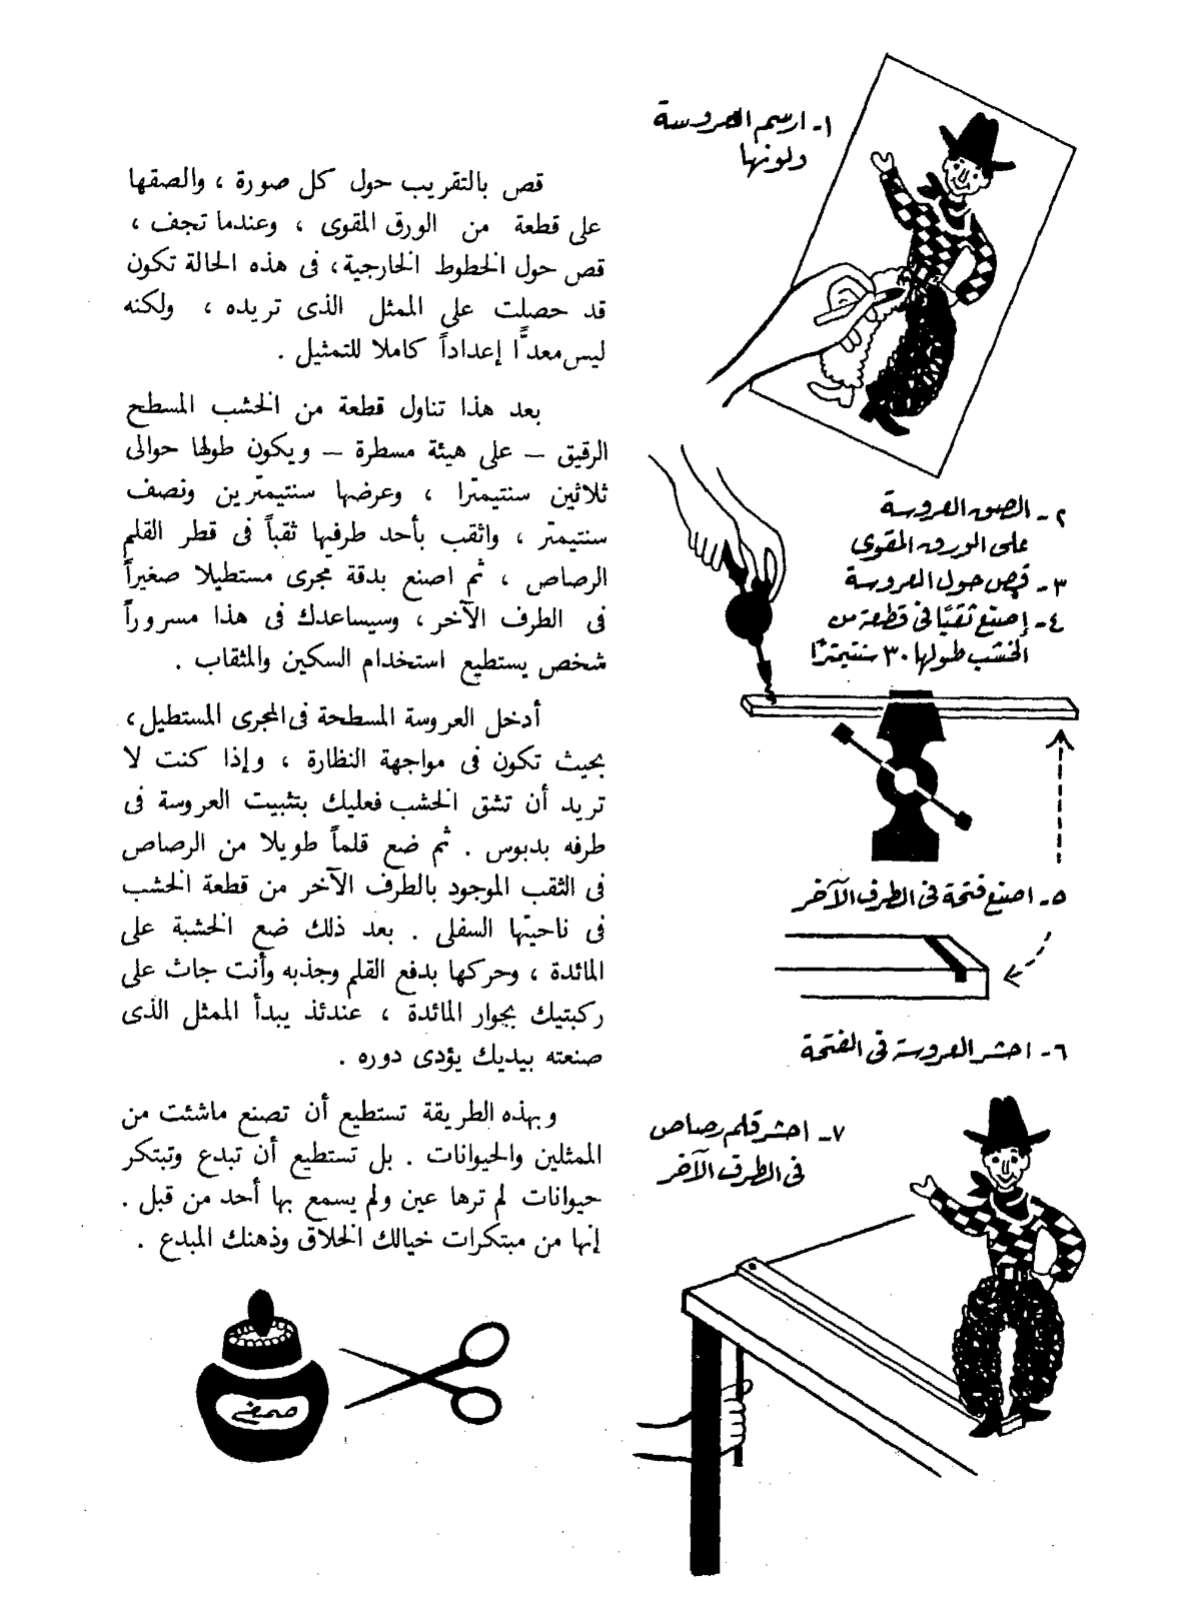 ١- ارسم العروسة
ولونها
٢- الصق العروسة
على الورق المقوى
٣- قص حول العروسة
٤- إصنع ثقبًا فى قطعة من
الخشب طولها ٣٠ سنتيمترًا
٥- اصنع فتحة فى الطرف الآخر
٦- احشر العروسة فى الفتحة
٧- احشر قلم رصاص
فى الطرف الآخر
قص بالتقريب حول كل صورة ، والصقها
على قطعة من الورق المقوى ، وعندما تجف ،
قص حول الخطوط الخارجية، فى هذه الحالة تكون
قد حصلت على الممثل الذى تريده ، ولكنه
ليس معدًّا إعداداً كاملا للتمثيل .
بعد هذا تناول قطعة من الخشب المسطح
الرقيق – على هيئة مسطرة – ويكون طولها حوالى
ثلاثين سنتيمترا ، وعرضها سنتيمترين ونصف
سنتيمتر ، واثقب بأحد طرفيها ثقباً فى قطر القلم
الرصاص ، ثم اصنع بدقة مجرى مستطيلا صغيراً
فى الطرف الآخر ، وسيساعدك فى هذا مسروراً
شخص يستطيع استخدام السكين والمثقاب .
أدخل العروسة المسطحة فى المجرى المستطيل،
بحيث تكون فى مواجهة النظارة ، وإذا كنت لا
تريد أن تشق الخشب فعليك بتثبيت العروسة فى
طرفه بدبوس . ثم ضع قلماً طويلا من الرصاص
فى الثقب الموجود بالطرف الآخر من قطعة الخشب
فى ناحيتها السفلى . بعد ذلك ضع الخشبة على
المائدة ، وحركها بدفع القلم وجذبه وأنت جاث على
ركبتيك بجوار المائدة ، عندئذ يبدأ الممثل الذى
صنعته بيديك يؤدى دوره .
وبهذه الطريقة تستطيع أن تصنع ماشئت من
الممثلين والحيوانات . بل تستطيع أن تبدع وتبتكر
حيوانات لم ترها عين ولم يسمع بها أحد من قبل .
إنها من مبتكرات خيالك الخلاق وذهنك المبدع .
صمغ